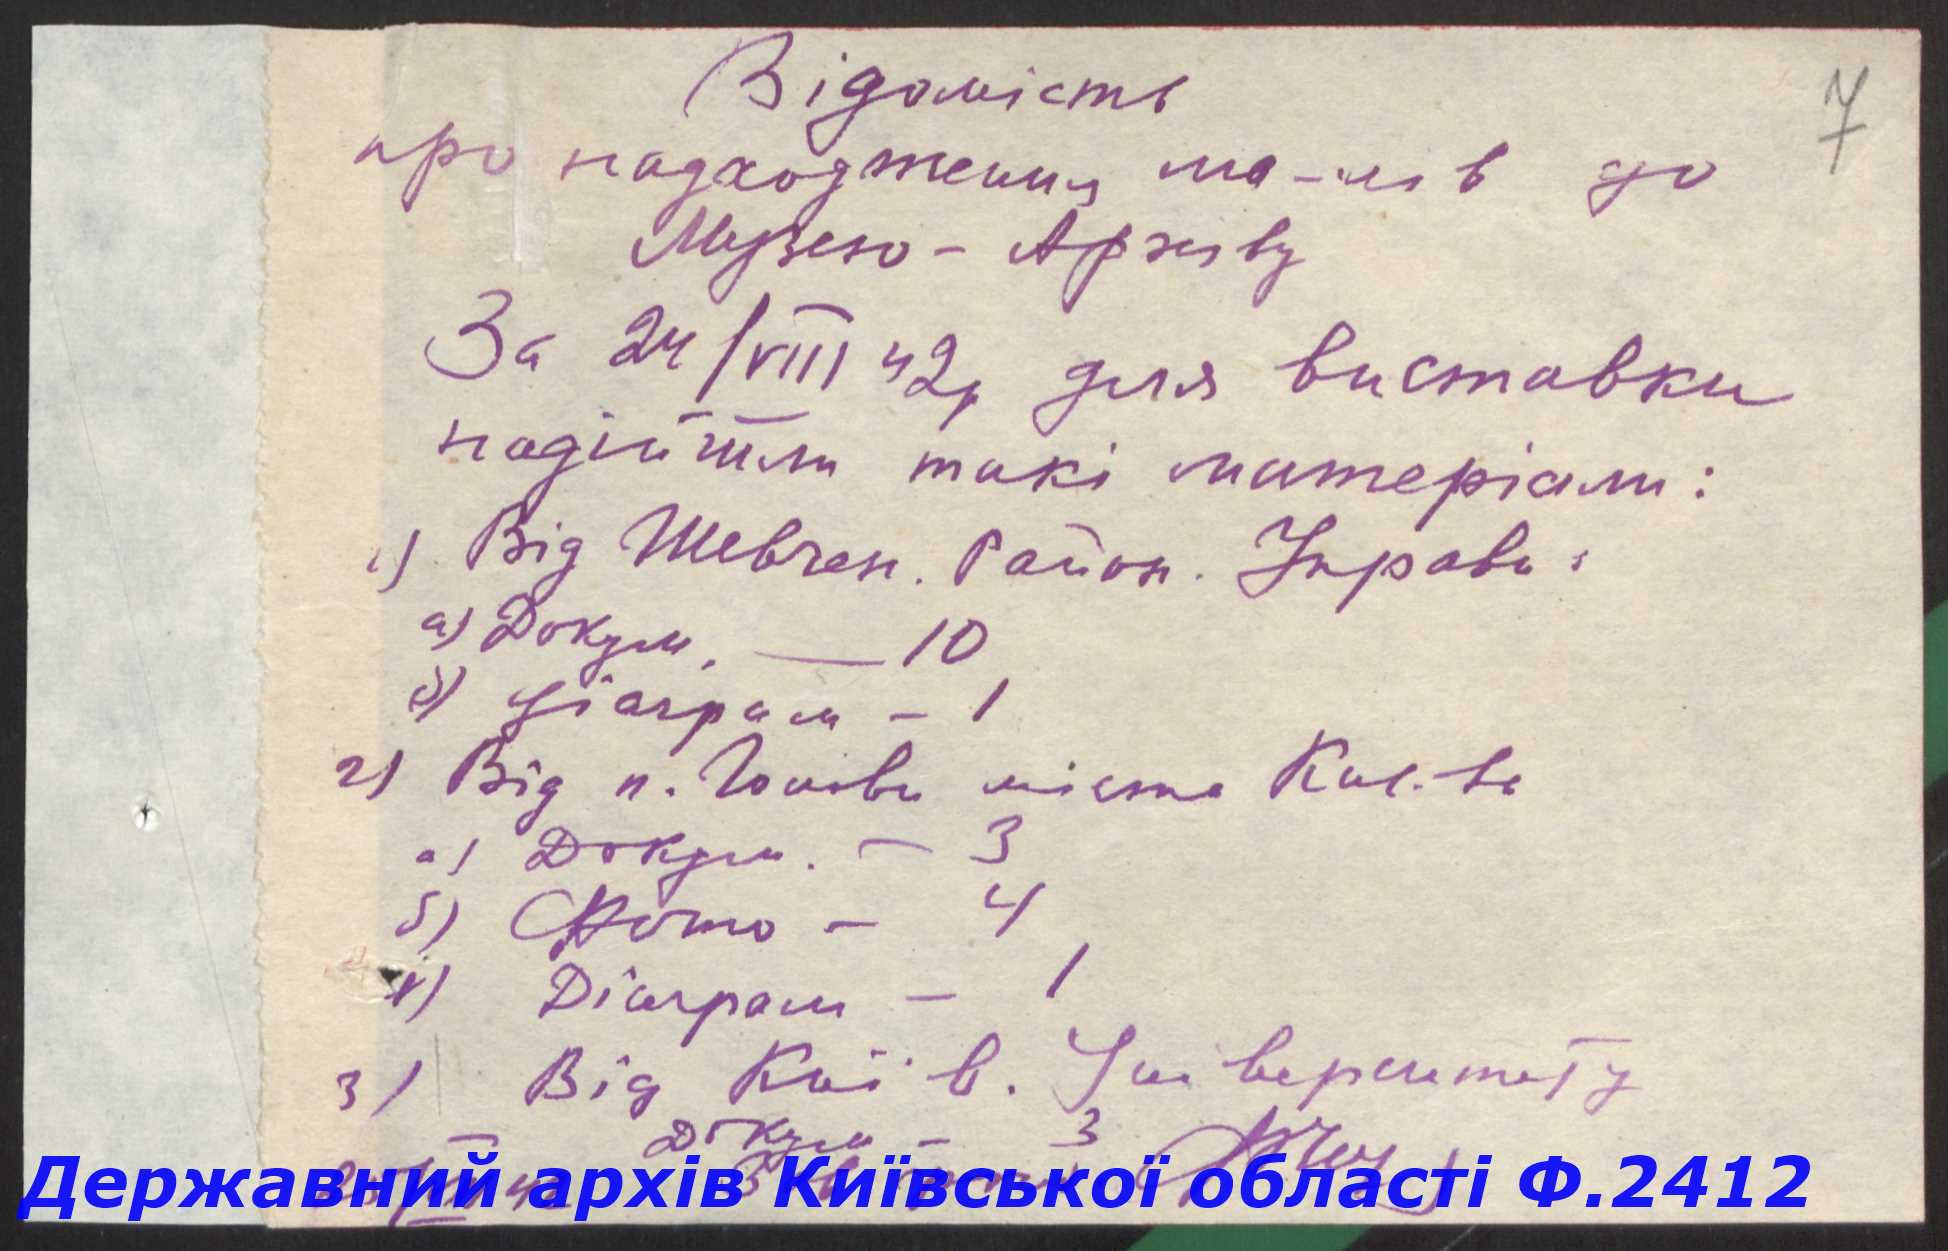 7
Відомість
про надходження ма-лів до
Музею - Архіву
За 24/VIII 42р для виставки
надійшли такі матеріали:
1) Від Шевчен. Район. Управи:
а) Докум. — 10
б) діаграм - 1
2) Від п. Голови міста Киє-ва
а) Докум. - 3
б) Фото - 4
в) Діаграм - 1
3) Від Київ. Університету
Докум - 3
Державний архів Київської області Ф.2412